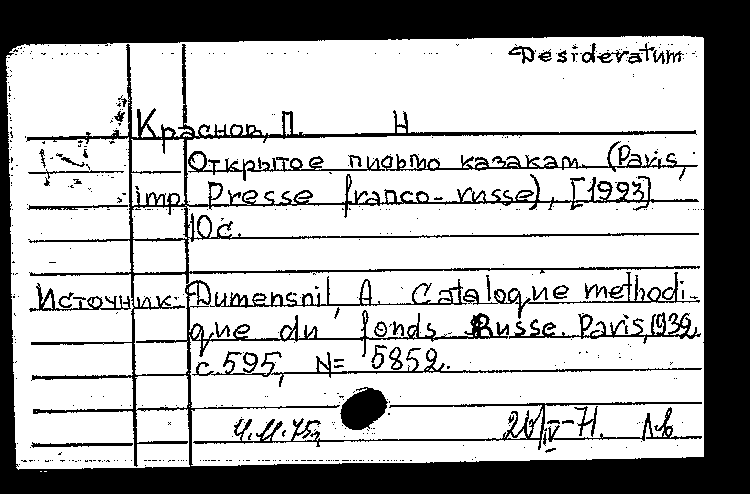 Desideratum
Краснов, П. Н
Открытое письмо казакам. (Paris,
imp. Presse franco-russe), [1923].
10с.
Источник: Dumensnil, A. Catalogue methodi-
que du fonds Russe. Paris, 1932.
с. 595, N= 5852.
26/IV-71. Лв.